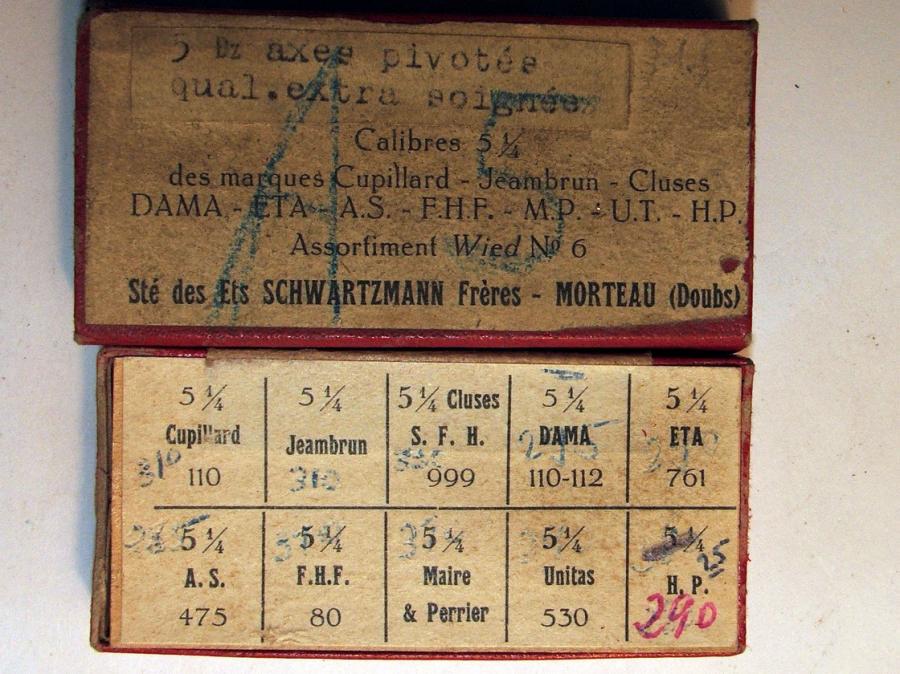 5 Dz axes pivotés
qual.extra soignées
Calibres 5 ¼
des marques Cupillard - Jeambrun - Cluses
DAMA - ETA - A.S. - F.H.F. - M.P. - U.T. - H.P.
Assortiment Wied Nº 6
Sté des Ets SCHWARTZMANN Frères - MORTEAU (Doubs)
5 ¼ 5 ¼ 5 ¼ Cluses 5 ¼ 5 ¼
Cupillard Jeambrun S. F. H. DAMA ETA
110 999 110-112 761
310 310
5 ¼ 5 ¼ 5 ¼ 5 ¼ 5 ¼
25
A. S. F.H.F. Maire Unitas H. P.
475 80 & Perrier 530 290